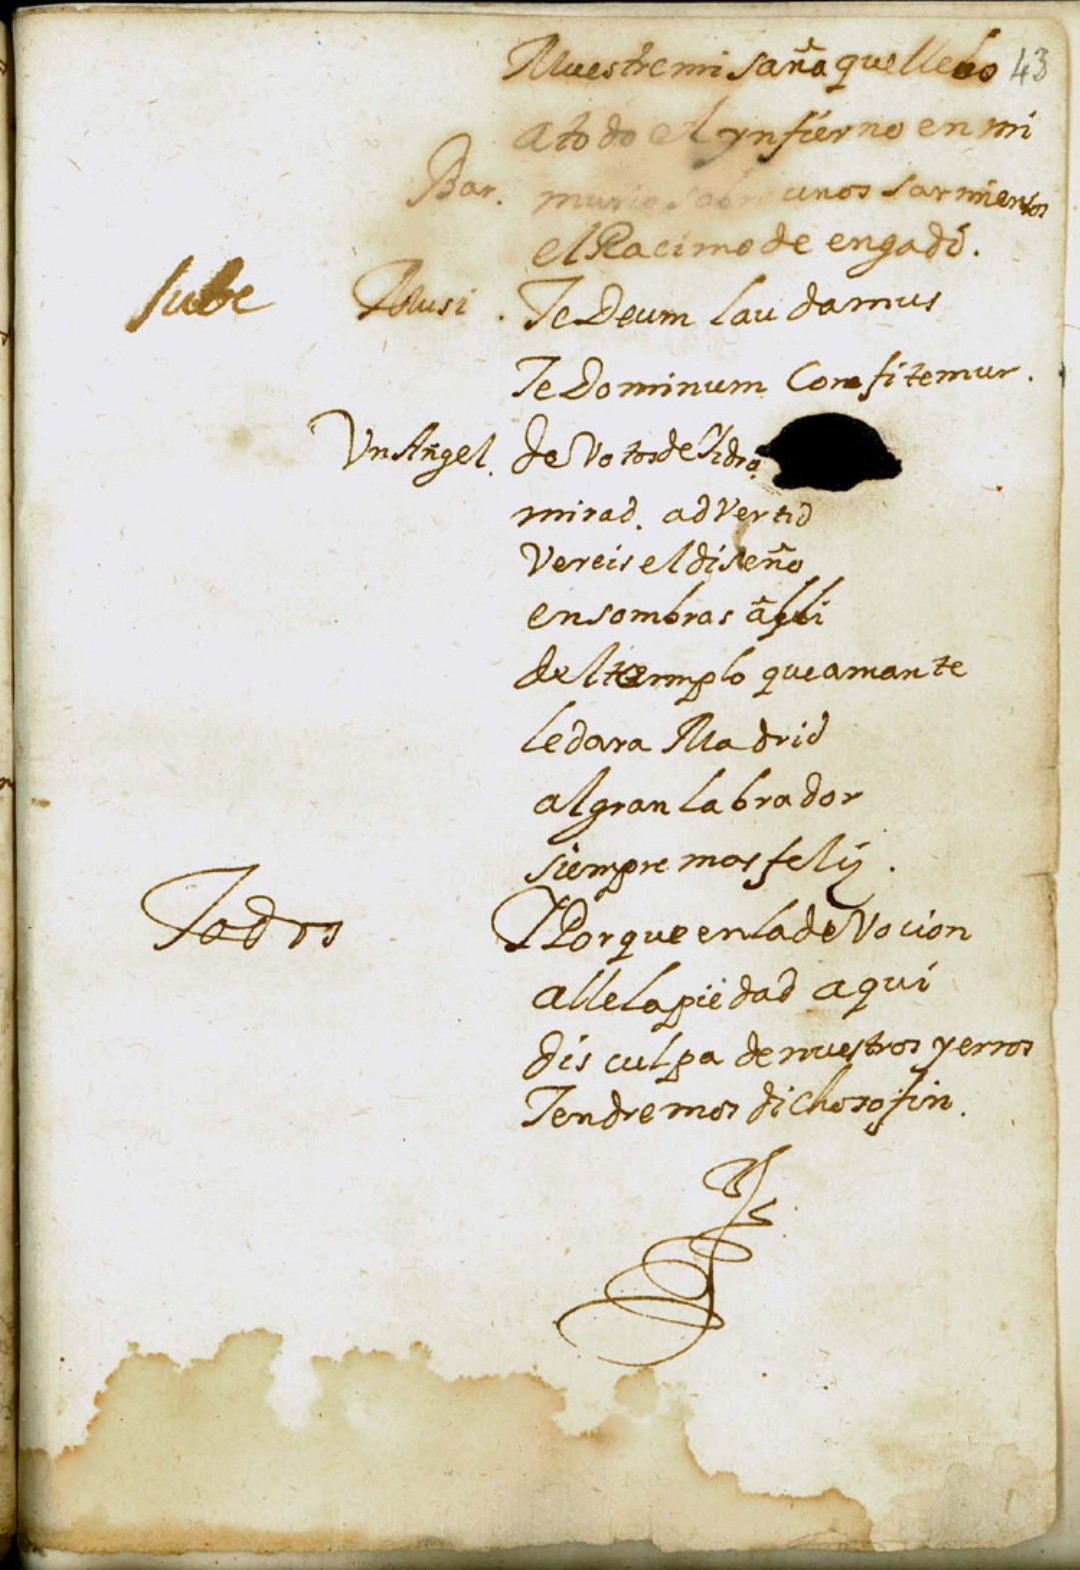 Muestre mi saña que llebo 43
a todo el ynfierno en mi
Bar. murio sobre unos sarmientos
el Racimo de engadi.
sube Musi. Te Deum laudamus
Te Dominum Comfitemur.
Vn Angel. de Votos de Isidro
mirad. adVertid
Vereis el diseño
en sombras alli
del templo que amante
le dara Madrid
al gran labrador
siempre mas feliz.
Todos Y Porque en la deVocion
alle la piedad aqui
disculpa de nuestros yerros
Tendremos dichoso fin.